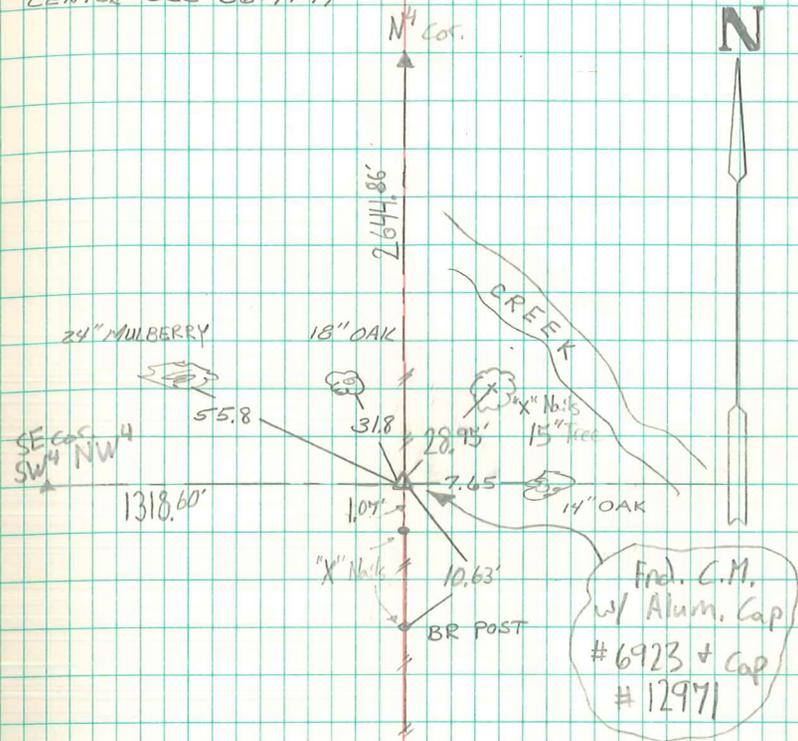 N⁴ Cor.
N
2644.86'
CREEK
24" MULBERRY
18" OAK
55.8
31.8
"X" Nails
28.95'
15" Tree
SE cor.
SW⁴ NW⁴
1318.60'
7.65
14" OAK
1.07'
"X" Nails
10.63'
BR POST
Fnd. C.M.
w/ Alum. Cap
# 6923 & Cap
# 12971